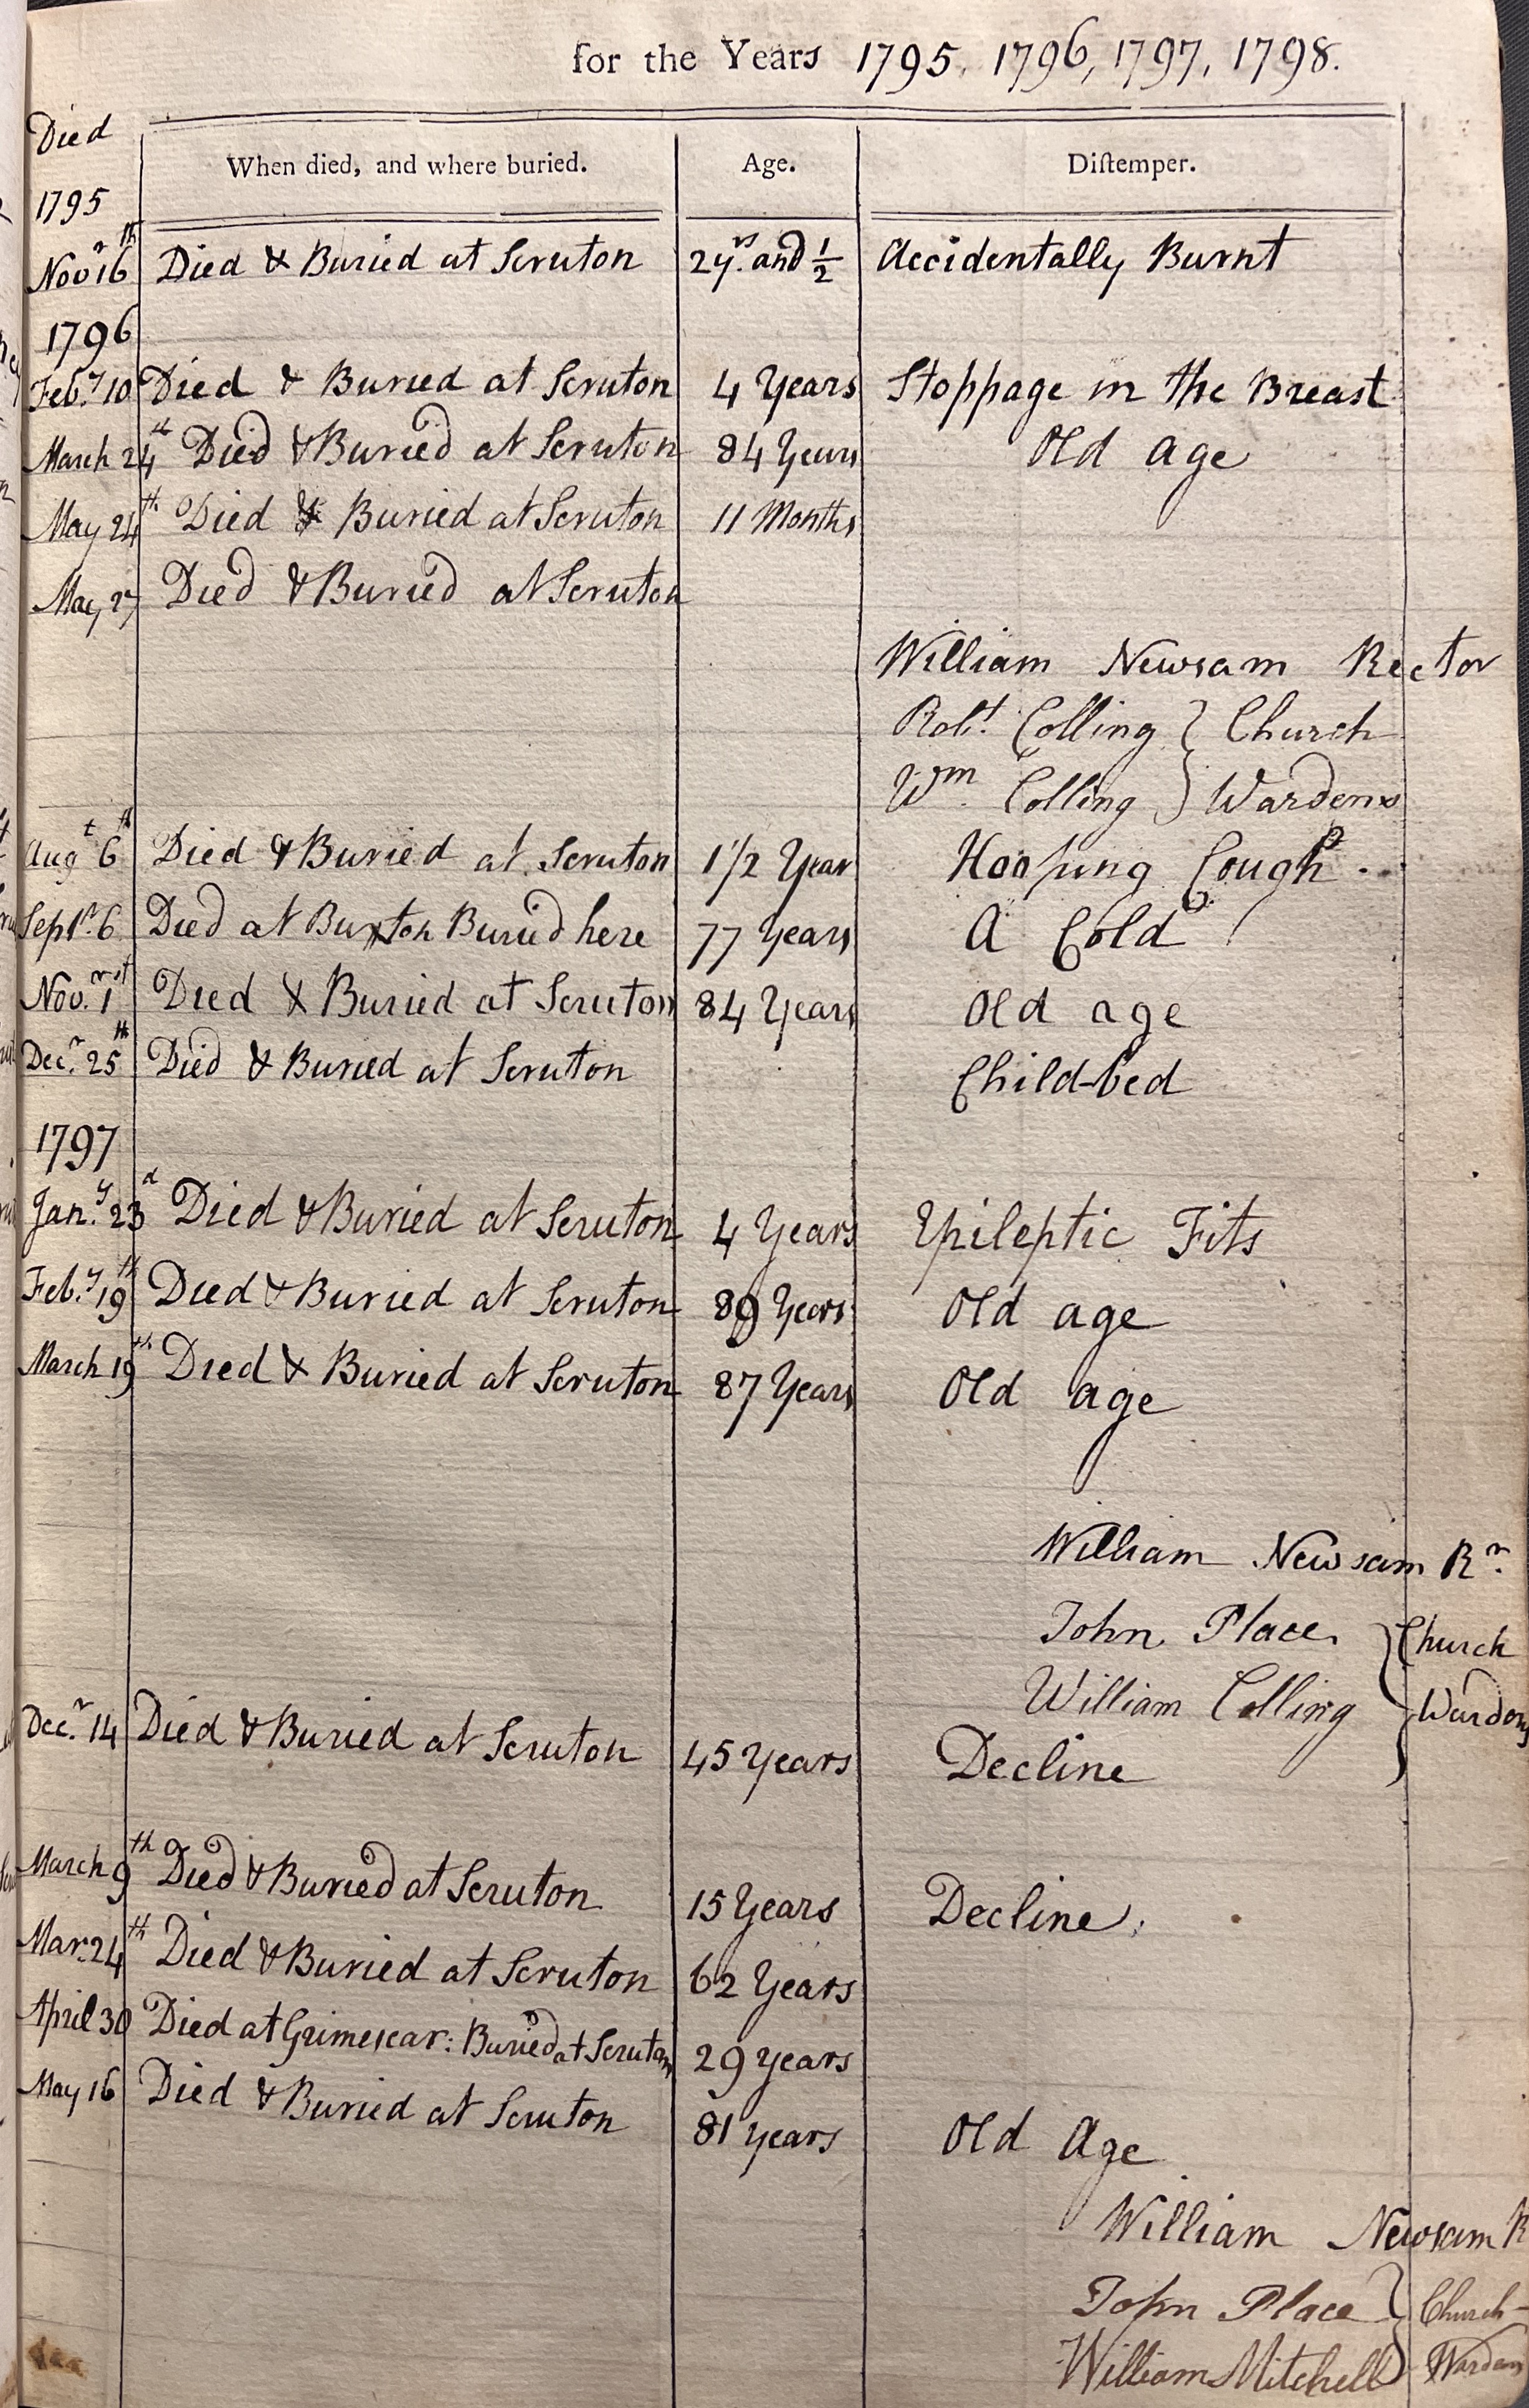 for the Years 1795, 1796, 1797, 1798.
Died
When died, and where buried. Age. Diſtemper.
1795
Novr 16th Died & Buried at Scruton 2 yrs. and 1/2 Accidentally Burnt
1796
Feby. 10 Died & Buried at Scruton 4 Years Stoppage in the Breast
March 24th Died & Buried at Scruton 84 Years Old age
May 24th Died & Buried at Scruton 11 Months
May 27 Died & Buried at Scruton
William Newsam Rector
Robt. Colling } Church
Wm. Colling } Wardens
Augt 6th Died & Buried at Scruton 1 1/2 Year Hooping Cough.
Septr. 6 Died at Buxton Buried here 77 Years A Cold
Novr. 1st Died & Buried at Scruton 84 Years Old age
Decr. 25th Died & Buried at Scruton Child-bed
1797
Jany. 23d Died & Buried at Scruton 4 Years Epileptic Fits
Feby. 19th Died & Buried at Scruton 89 Years Old age
March 19th Died & Buried at Scruton 87 Years Old age
William Newsam Rr.
John Place } Church
William Colling } Wardens
Decr. 14 Died & Buried at Scruton 45 Years Decline
March 9th Died & Buried at Scruton 15 Years Decline.
Mar. 24th Died & Buried at Scruton 62 Years
April 30 Died at Grimescar: Buried at Scruton 29 years
May 16 Died & Buried at Scruton 81 years Old Age
William Newsam R
John Place } Church-
William Mitchell } Wardens